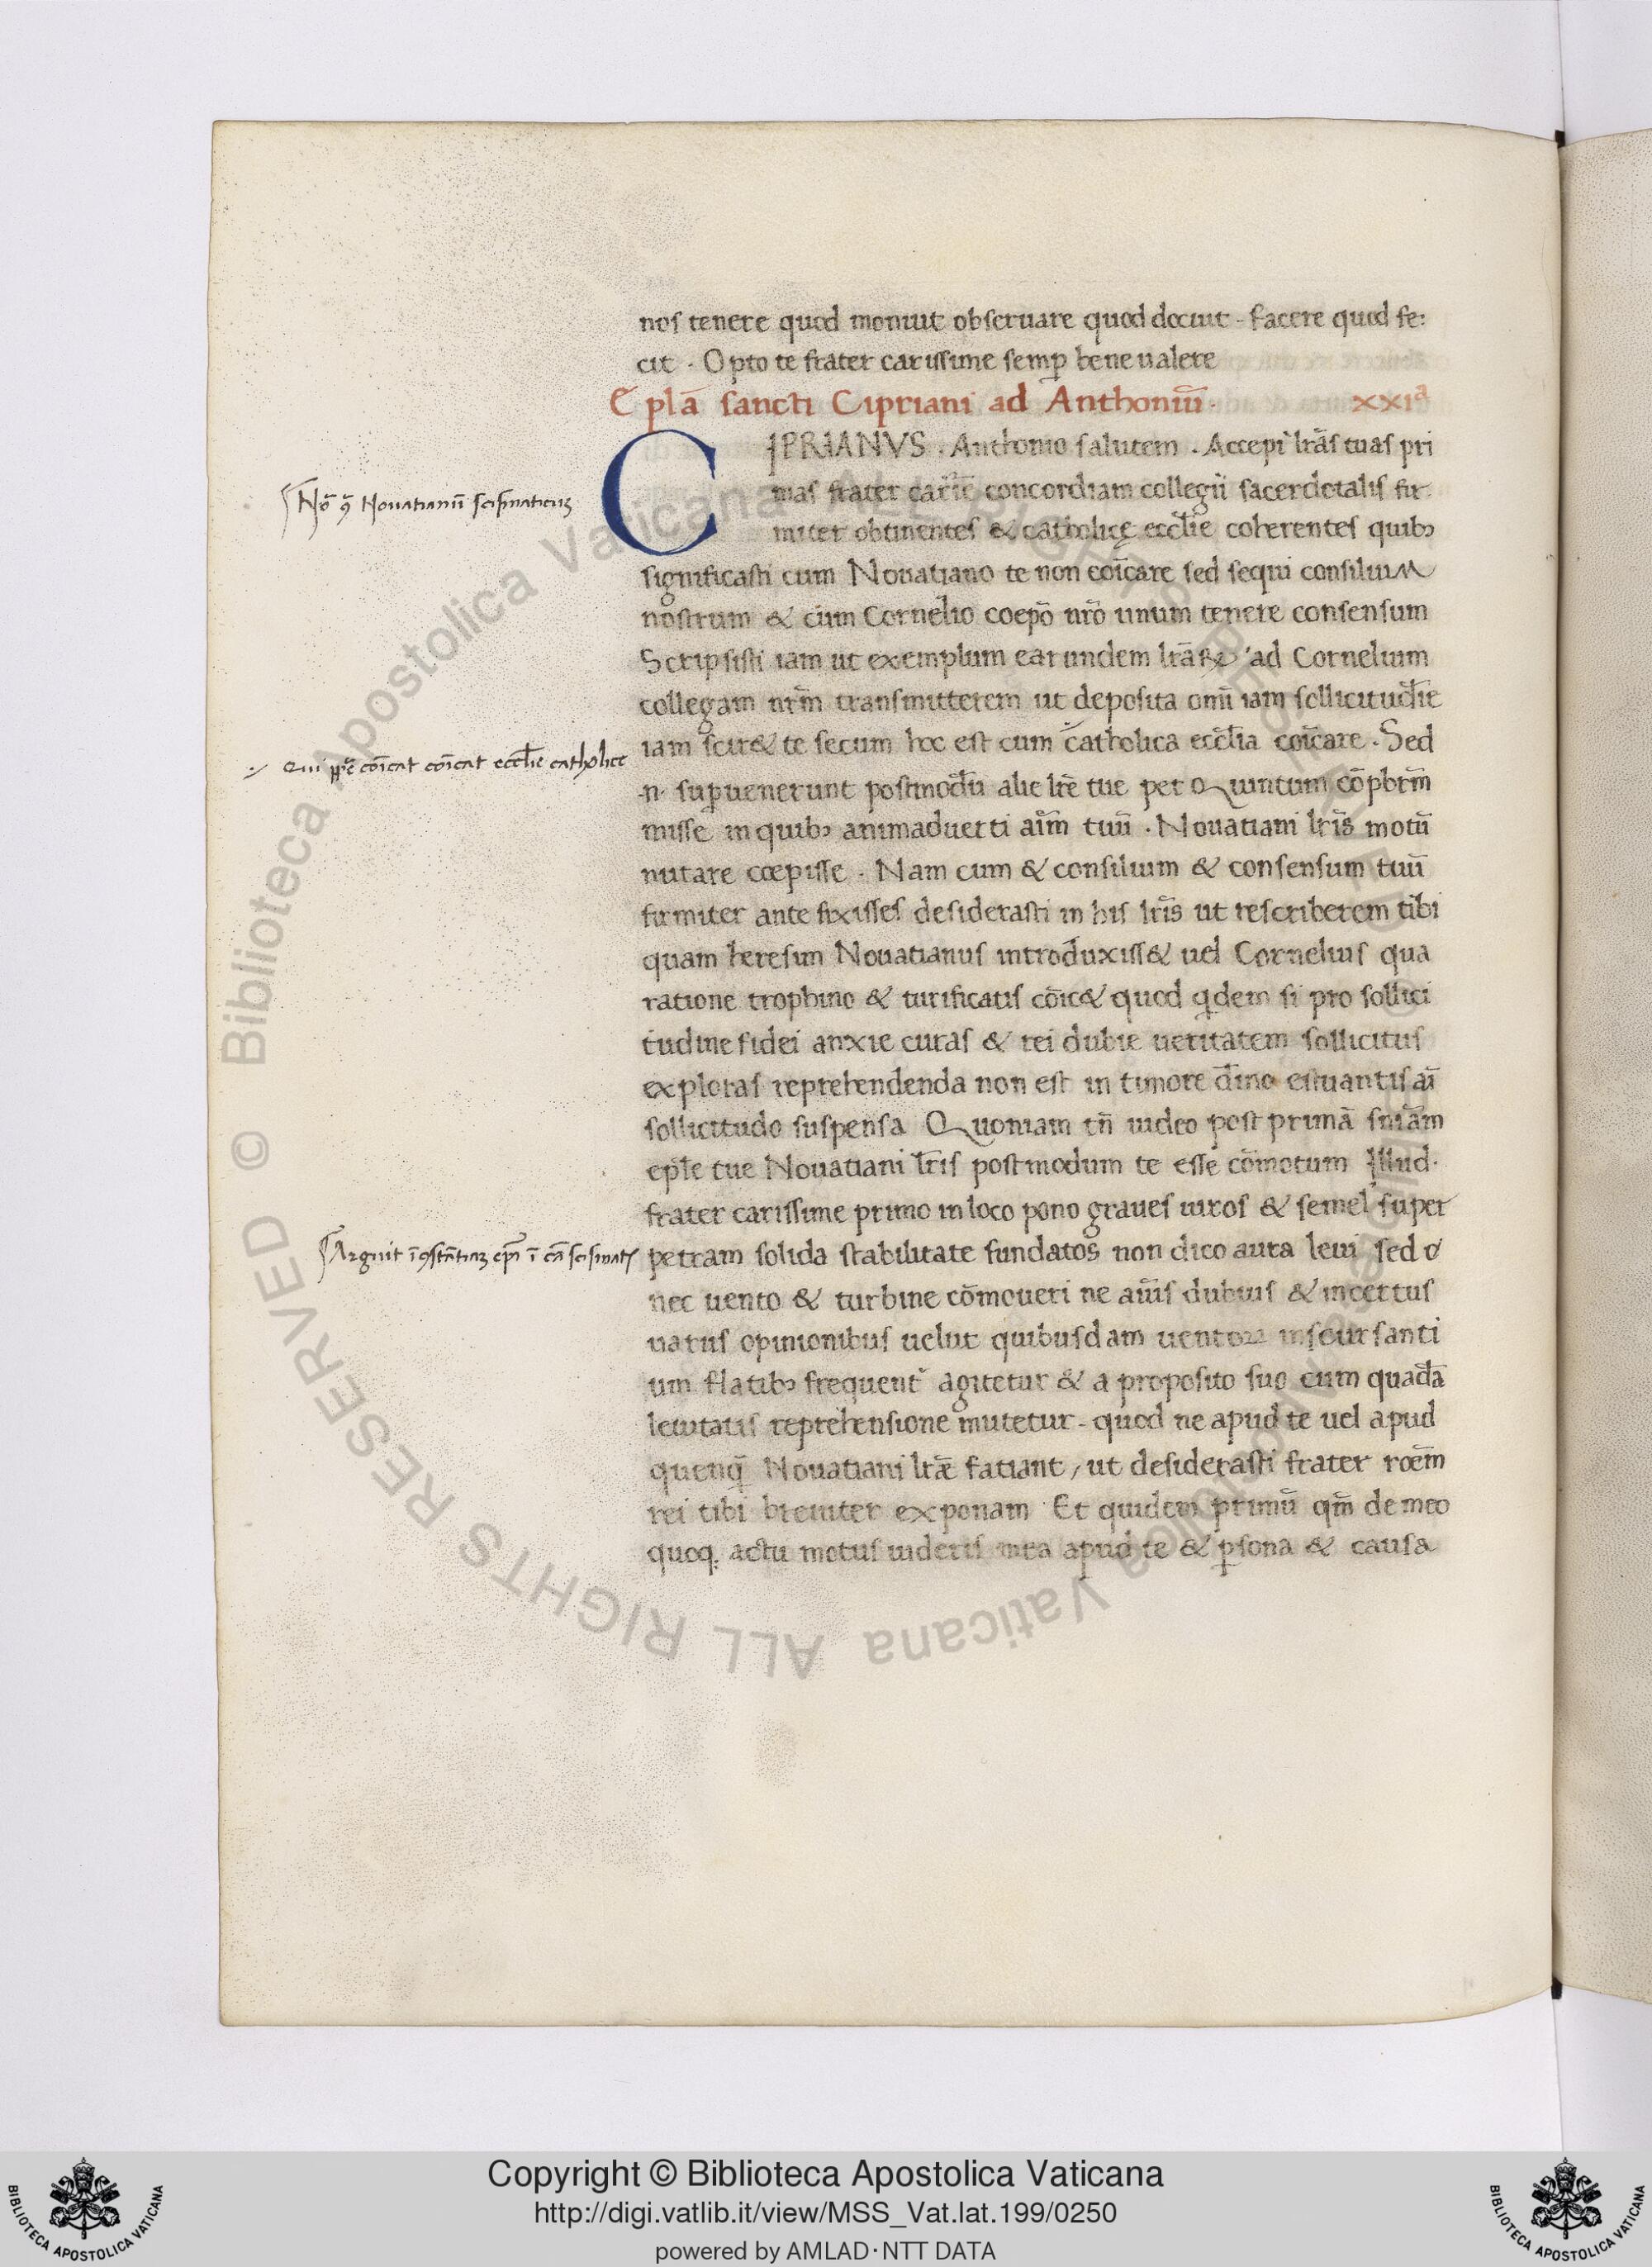 nos tenere quod monuit obseruare quod docuit - facere quod fe:
cit · Opto te frater carissime semꝑ bene ualere
Eplā sancti Cipriani ad Anthoniū · XXIª
CIPRIANVS · Anthonio salutem · Accepi lrās tuas pri
mas frater cariē concordiam collegii sacerdotalis fir
miter obtinentes & catholicę ecclīe coherentes quibꝫ
significasti cum Nouatiano te non coīcare sed sequi consilium
nostrum & cum Cornelio coepō nrō unum tenere consensum
Scripsisti iam ut exemplum earundem lrāꝝ ad Cornelium
collegam nrm̄ transmitterem ut deposita omī iam sollicitudīe
iam scir& te secum hoc est cum catholica ecclīa coīcare · Sed
·n· suꝑuenerunt postmodū alie lrē tue per Quintum cōpbrm̄
misse in quibꝫ animaduerti aīm tuū · Nouatiani lrīs motū
nutare cœpisse · Nam cum & consilium & consensum tuū
firmiter ante fixisses desiderasti in his lrīs ut rescriberem tibi
quam heresim Nouatianus introduxiss& uel Cornelius qua
ratione trophino & turificatis cōic& quod qdem si pro sollici
tudine fidei anxie curas & rei dubie ueritatem sollicitus
exploras reprehendenda non est in timore dīno estuantis aī
sollicitudo suspensa Quoniam tn̄ uideo post primā sniām
eplē tue Nouatiani lrīs postmodum te esse cōmotum Illud·
frater carissime primo in loco pono graues uiros & semel super
petram solida stabilitate fundatos non dico aura leui sed
nec uento & turbine cōmoueri ne aīus dubius & incertus
uariis opinionibus uelut quibusdam uentoꝝ inscursanti
um flatibꝫ frequent̄ agitetur & a proposito suo cum quadā
leuitatis reprehensione mutetur - quod ne apud te uel apud
quenq̄ Nouatiani lrǣ fatiant, ut desiderasti frater roēm
rei tibi breuiter exponam · Et quidem primū qm̄ de meo
quoq. actu motus uideris mea apud te & ꝑsona & causa
Nō ꝯ Nouatianū scismaticuꝫ
Qui ppē coīcat coīcat ecclīe catholice
Arguit īꝯstātiaꝫ epī ī cā scismatꝭ
© Biblioteca Apostolica Vaticana ALL RIGHTS RESERVED
© Biblioteca Apostolica Vaticana ALL RIGHTS RESERVED
Copyright © Biblioteca Apostolica Vaticana
http://digi.vatlib.it/view/MSS_Vat.lat.199/0250
powered by AMLAD·NTT DATA
BIBLIOTECA APOSTOLICA VATICANA
BIBLIOTECA APOSTOLICA VATICANA